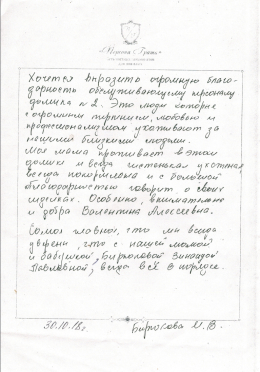 Хочется выразить огромную благо-
дарность обслуживающему персоналу
домика №2. Это люди которые
с огромным терпением, любовью и
профессионализмом ухаживают за
нашими близкими людьми.
Моя мама проживает в этом
домике и всегда чистенькая ухоженая
всегда накормлена и с большой
благодарностью говорит о своих
Особенно, внимательна
и добра Валентина Алексеевна.
Самое главное, что мы всегда
уверены, что с нашей мамой
и бабушкой, Бирюковой Зинаидой
Павловной, всегда всё в порядке.
30.10.18г. Бирюкова И.В.